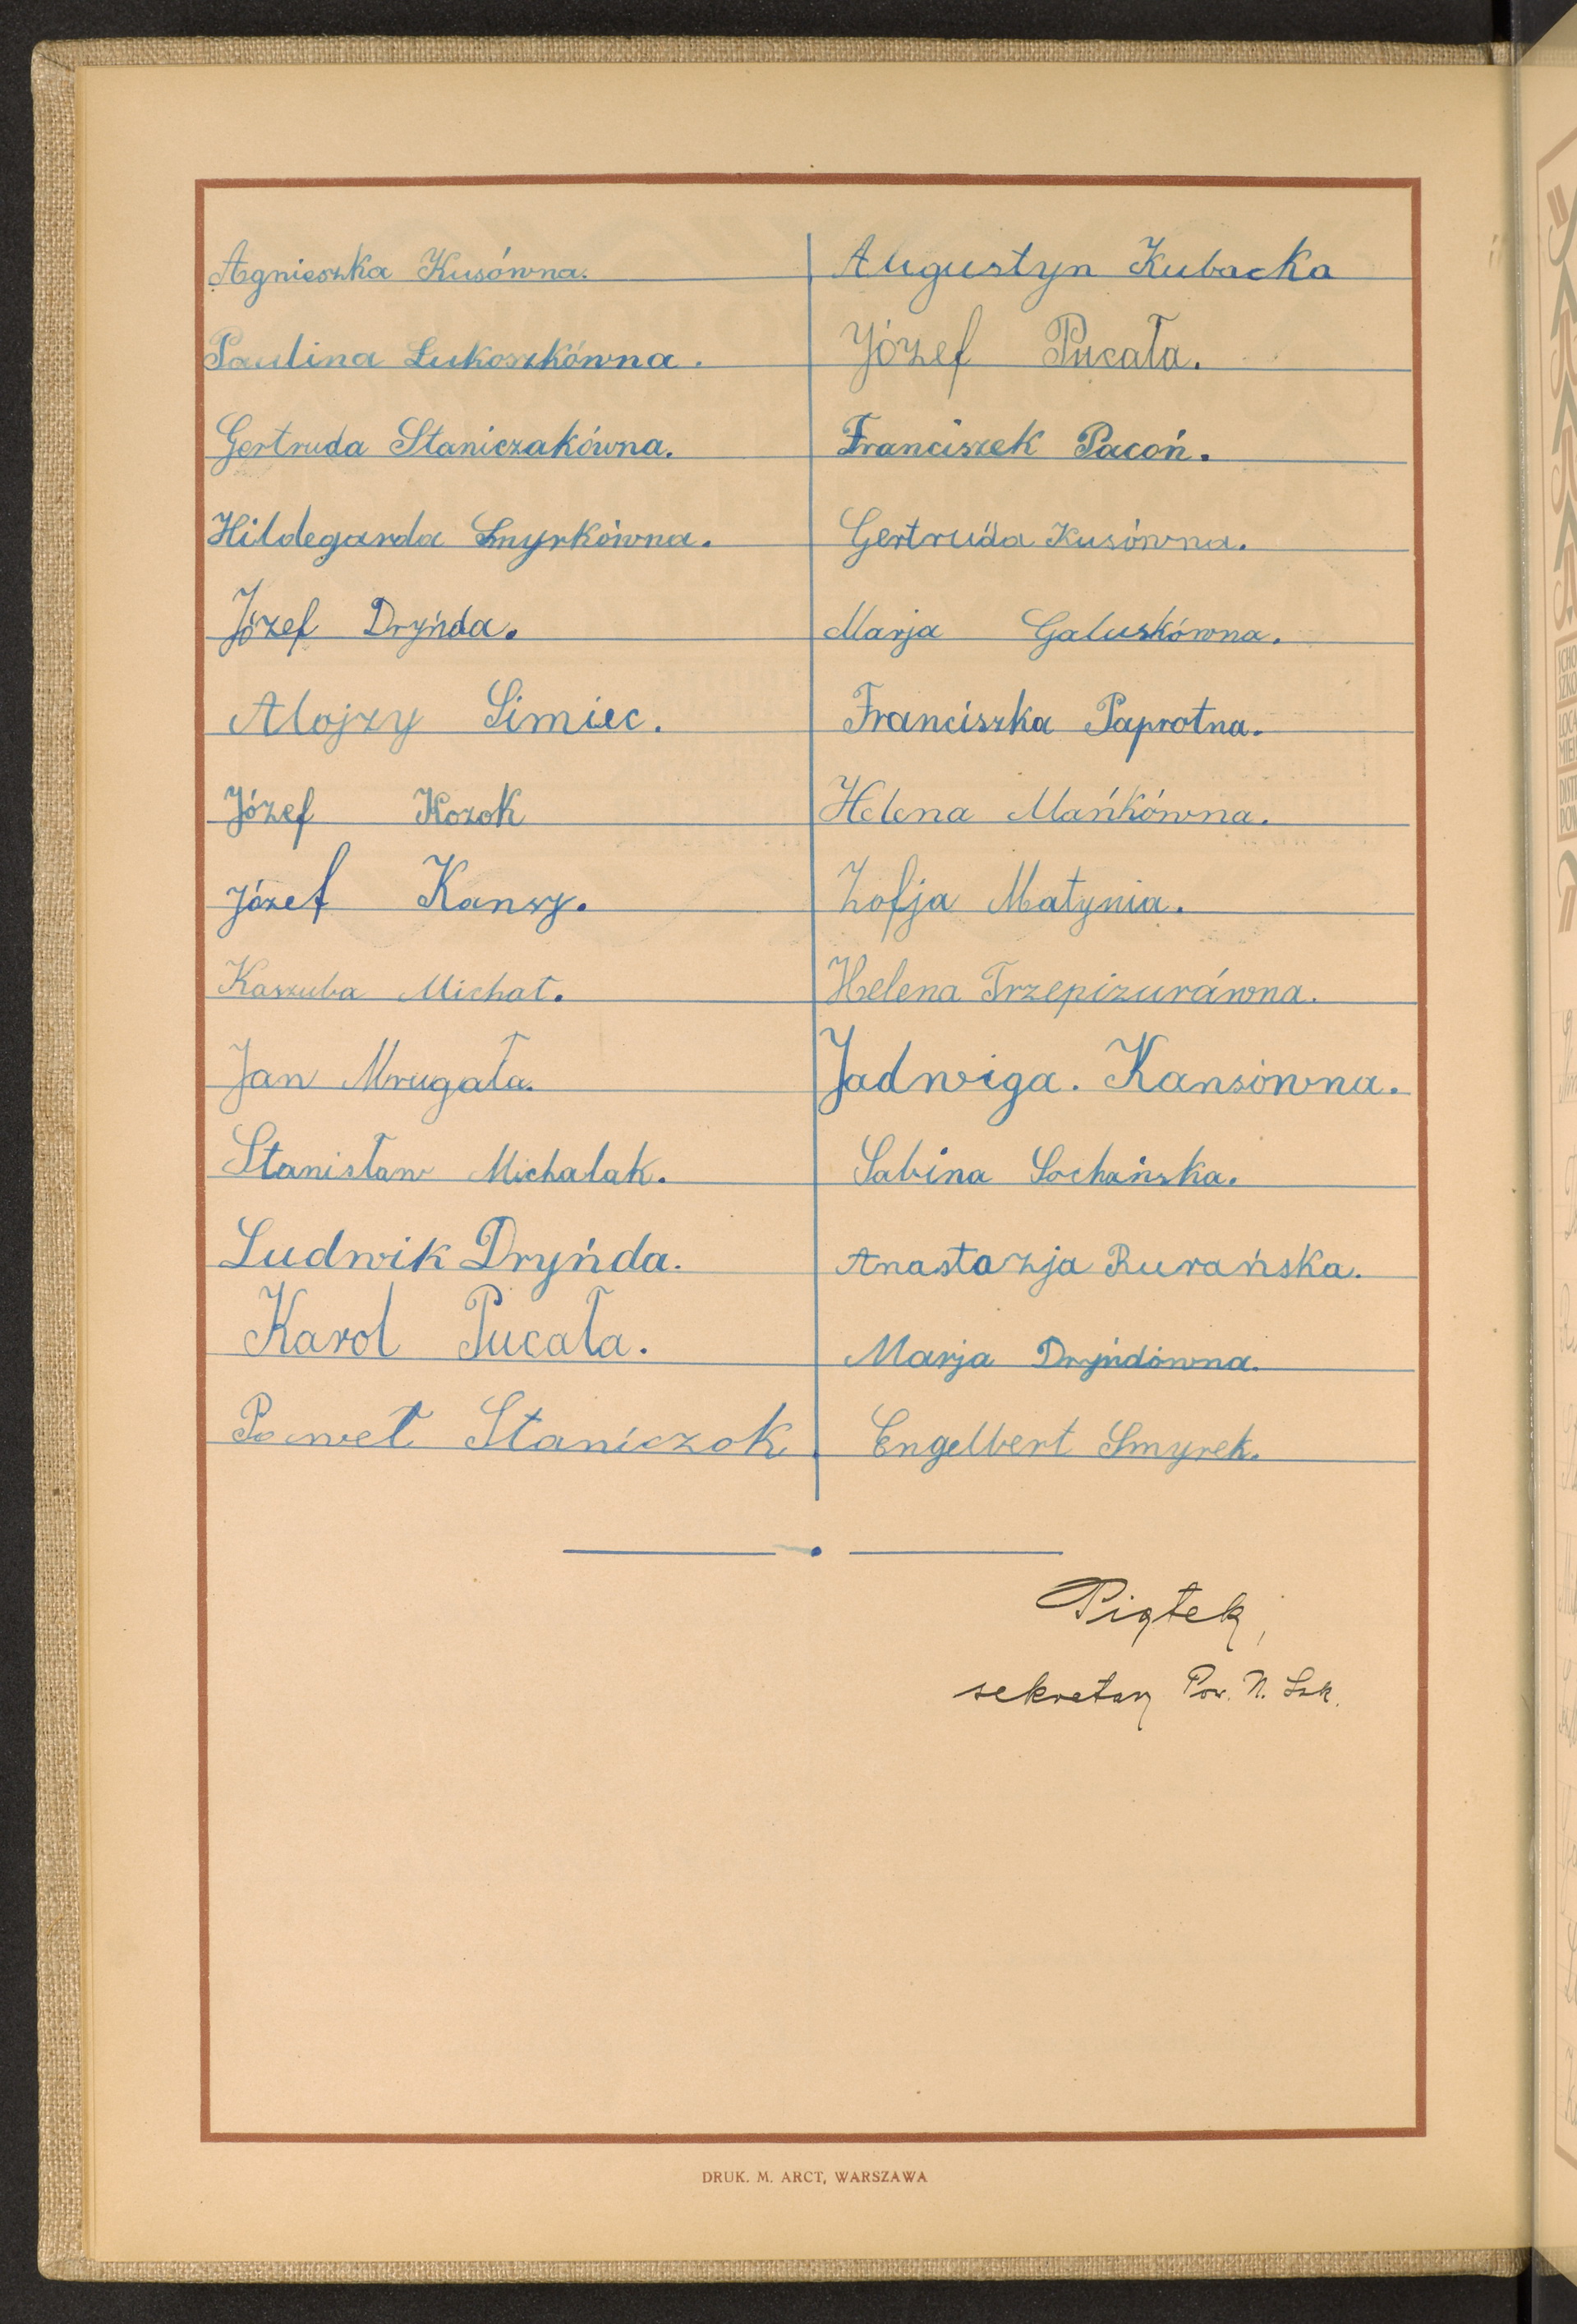 Agnieszka Kusówna.
Paulina Lukoszkówna.
Gertruda Staniczakówna.
Hildegarda Smyrkówna.
Józef Dryńda.
Alojzy Simiec.
Józef Kozok
Józef Kansy.
Kaszuba Michał.
Jan Mrugała.
Stanisław Michalak.
Ludwik Dryńda.
Karol Pucała.
Paweł Staniczok.
Augustyn Kubacka
Józef Pucała.
Franciszek Pacoń.
Gertruda Kusówna.
Marja Galuskówna.
Franciszka Paprotna.
Helena Mańkówna.
Zofja Matynia.
Helena Trzepizurówna.
Jadwiga. Kansówna.
Sabina Sochańska.
Anastazja Rurańska.
Marja Dryńdówna.
Engelbert Smyrek.
Piątek,
sekretarz Pow. N. Szk.
DRUK. M. ARCT, WARSZAWA